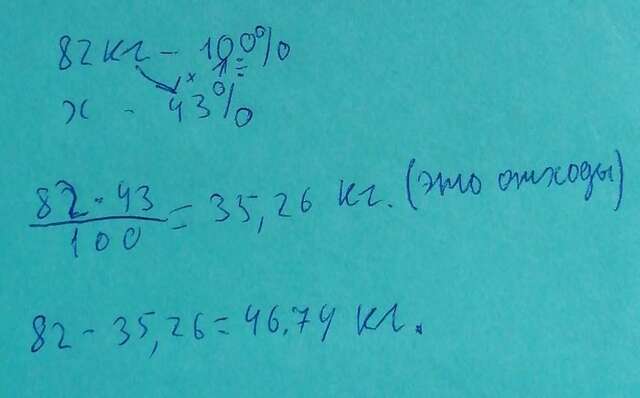 82кг - 100%
х - 43%
82·43
100
= 35,26 кг. (это отходы)
82 - 35,26 = 46.74 кг.